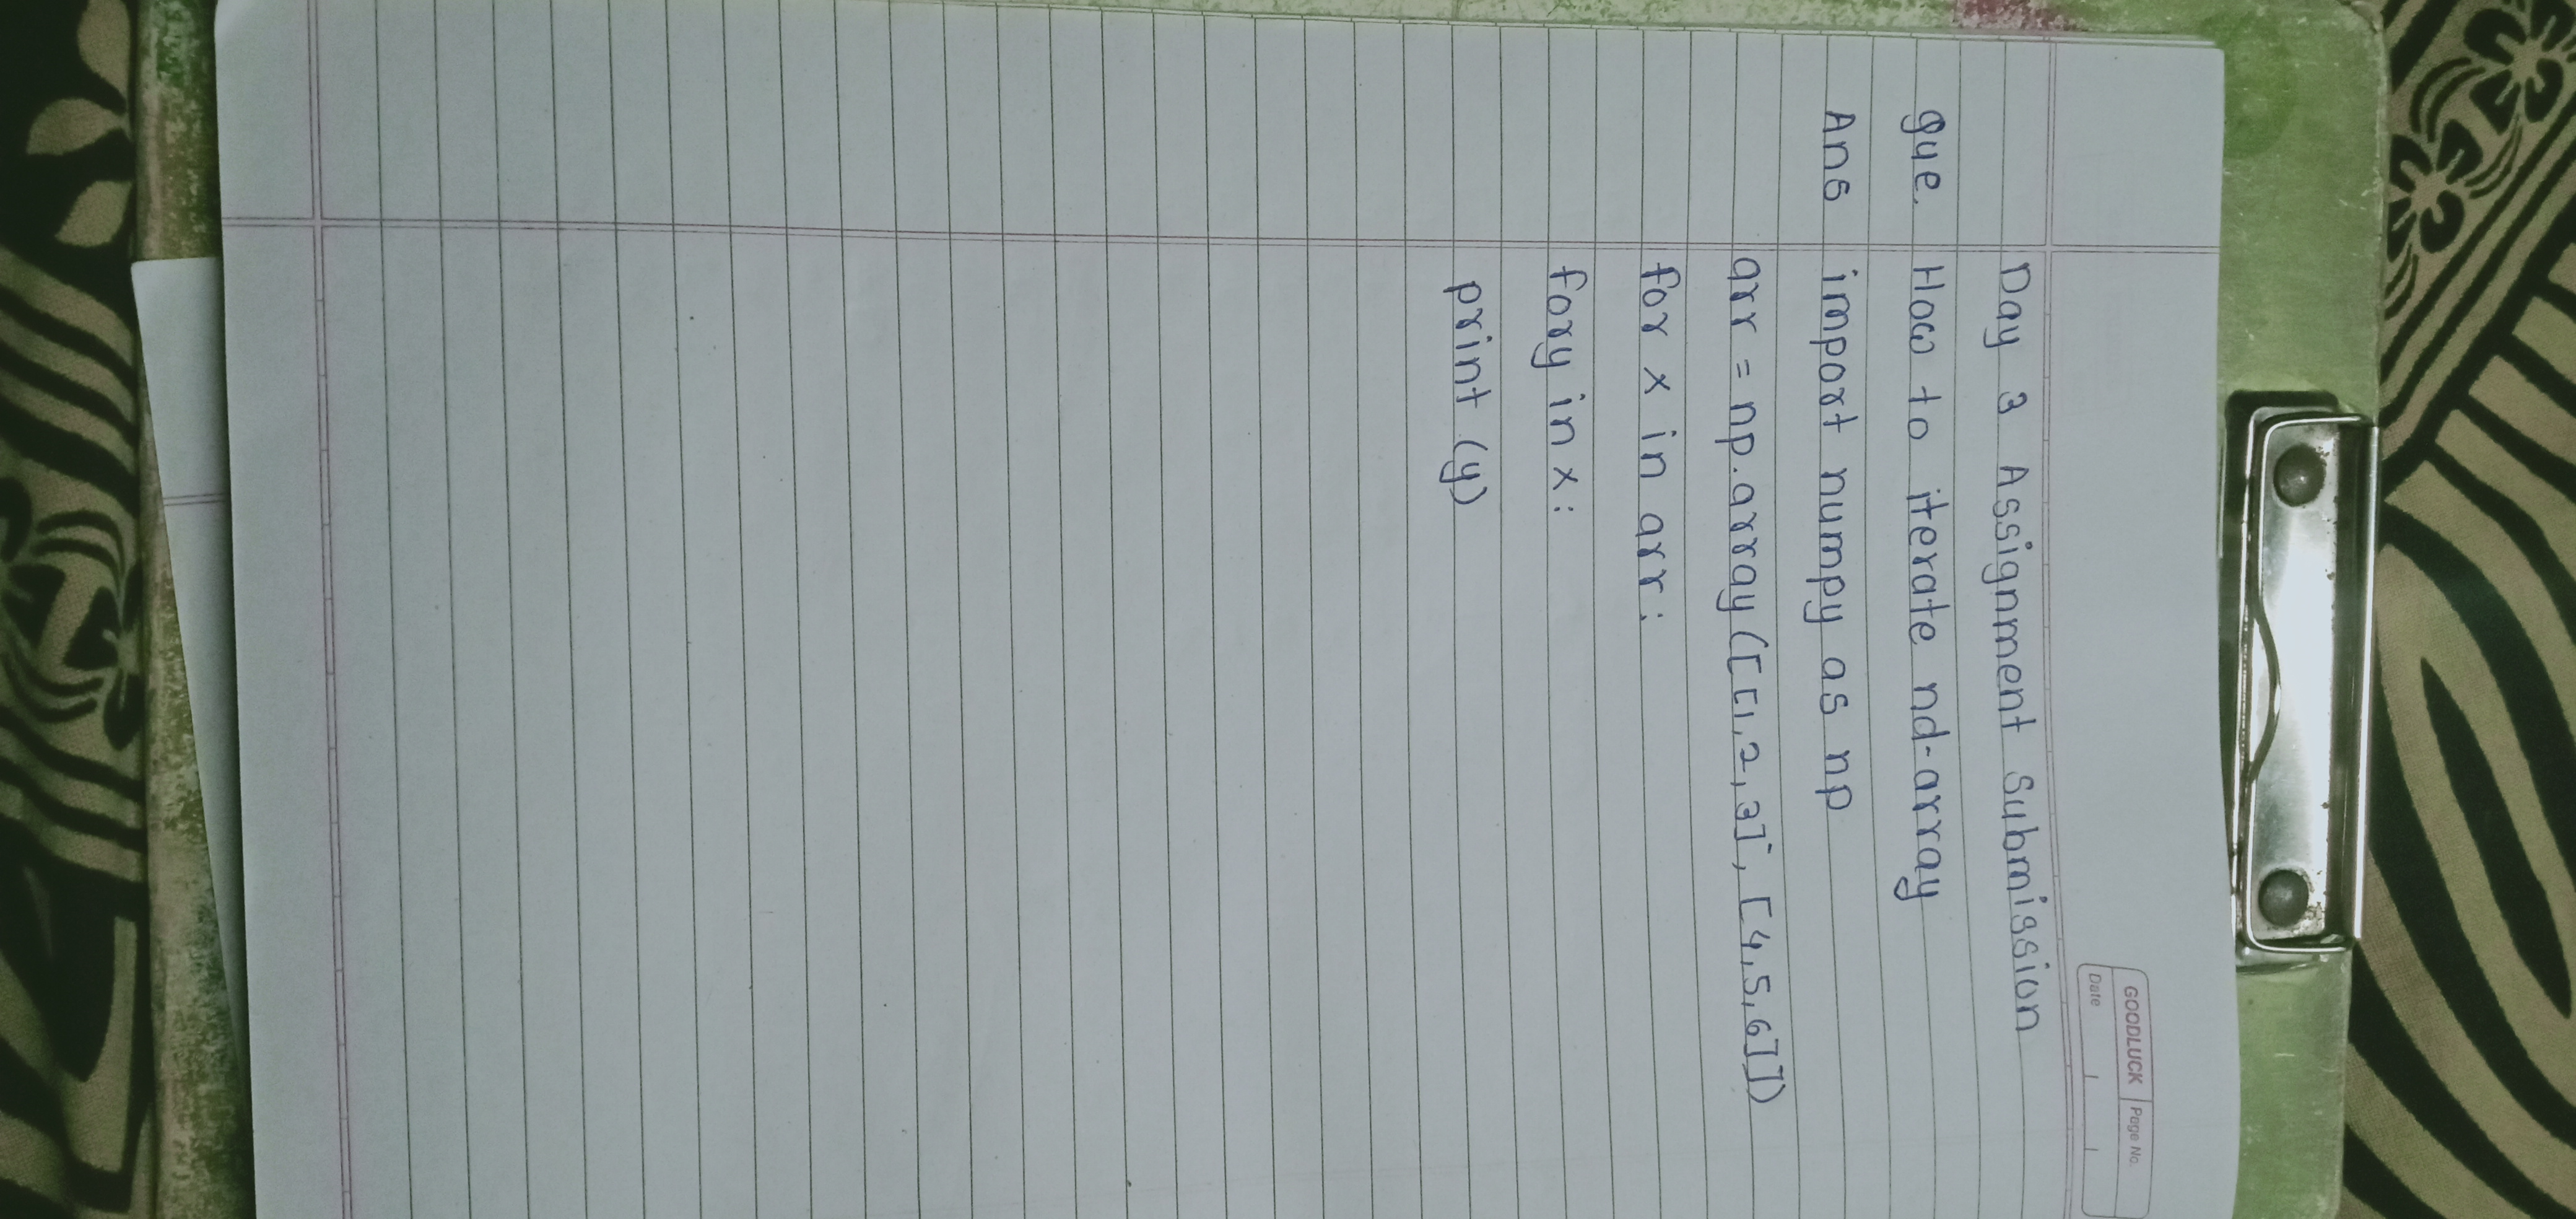 GOODLUCK Page No.
Date
Day 3 Assignment Submission
Que. How to iterate nd-array
Ans import numpy as np
arr = np.array([[1,2,3], [4,5,6]])
for x in arr:
for y in x:
print (y)